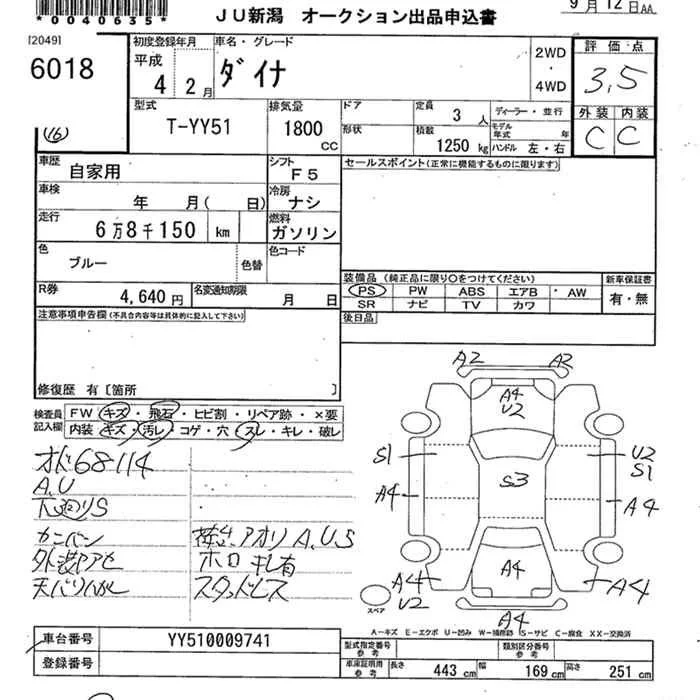 *0040635*
JU新潟 オークション出品申込書
9月12日AA
[2049]
6018
(16)
初度登録年月
平成
4 2月
車名・グレード
ダイナ
2WD
・
4WD
評価点
3.5
外装 内装
C C
型式
T-YY51
排気量
1800
CC
ドア
形状
定員
3人
積載
1250 kg
ディーラー・並行
モデル年式 年
ハンドル 左・右
車歴
自家用
シフト
F5
セールスポイント(正常に機能するものに限ります)
車検
年 月( 日)
冷房
ナシ
走行
6万8千150 km
燃料
ガソリン
色
ブルー
色替
色コード
R券
4,640円
名変通知期限
月 日
装備品(純正品に限り〇をつけてください)
PS PW ABS エアB ・ AW
SR ナビ TV カワ
新車保証書
有・無
後日品
注意事項申告欄(不具合内容等は具体的に記入して下さい)
修復歴 有〔箇所 〕
検査員記入欄
FW キズ・飛石・ヒビ割・リペア跡・×要
内装 キズ・汚レ・コゲ・穴・スレ・キレ・破レ
68114
A.U
S
カンバン
アオリ A.U.S
ホロ キレ有
スタッドレス
A2 A2
A4
U2
S1
U2
S1
S3
A4
A4
A4
A4
U2
A4
A4
スペア
A-キズ E-エクボ U-凹み W-補修跡 S-サビ C-腐食 XX-交換済
車台番号
YY510009741
登録番号
型式指定番号
参考
類別区分番号
参考
車庫証明用
参考
長さ 443 cm 幅 169 cm 高さ 251 cm